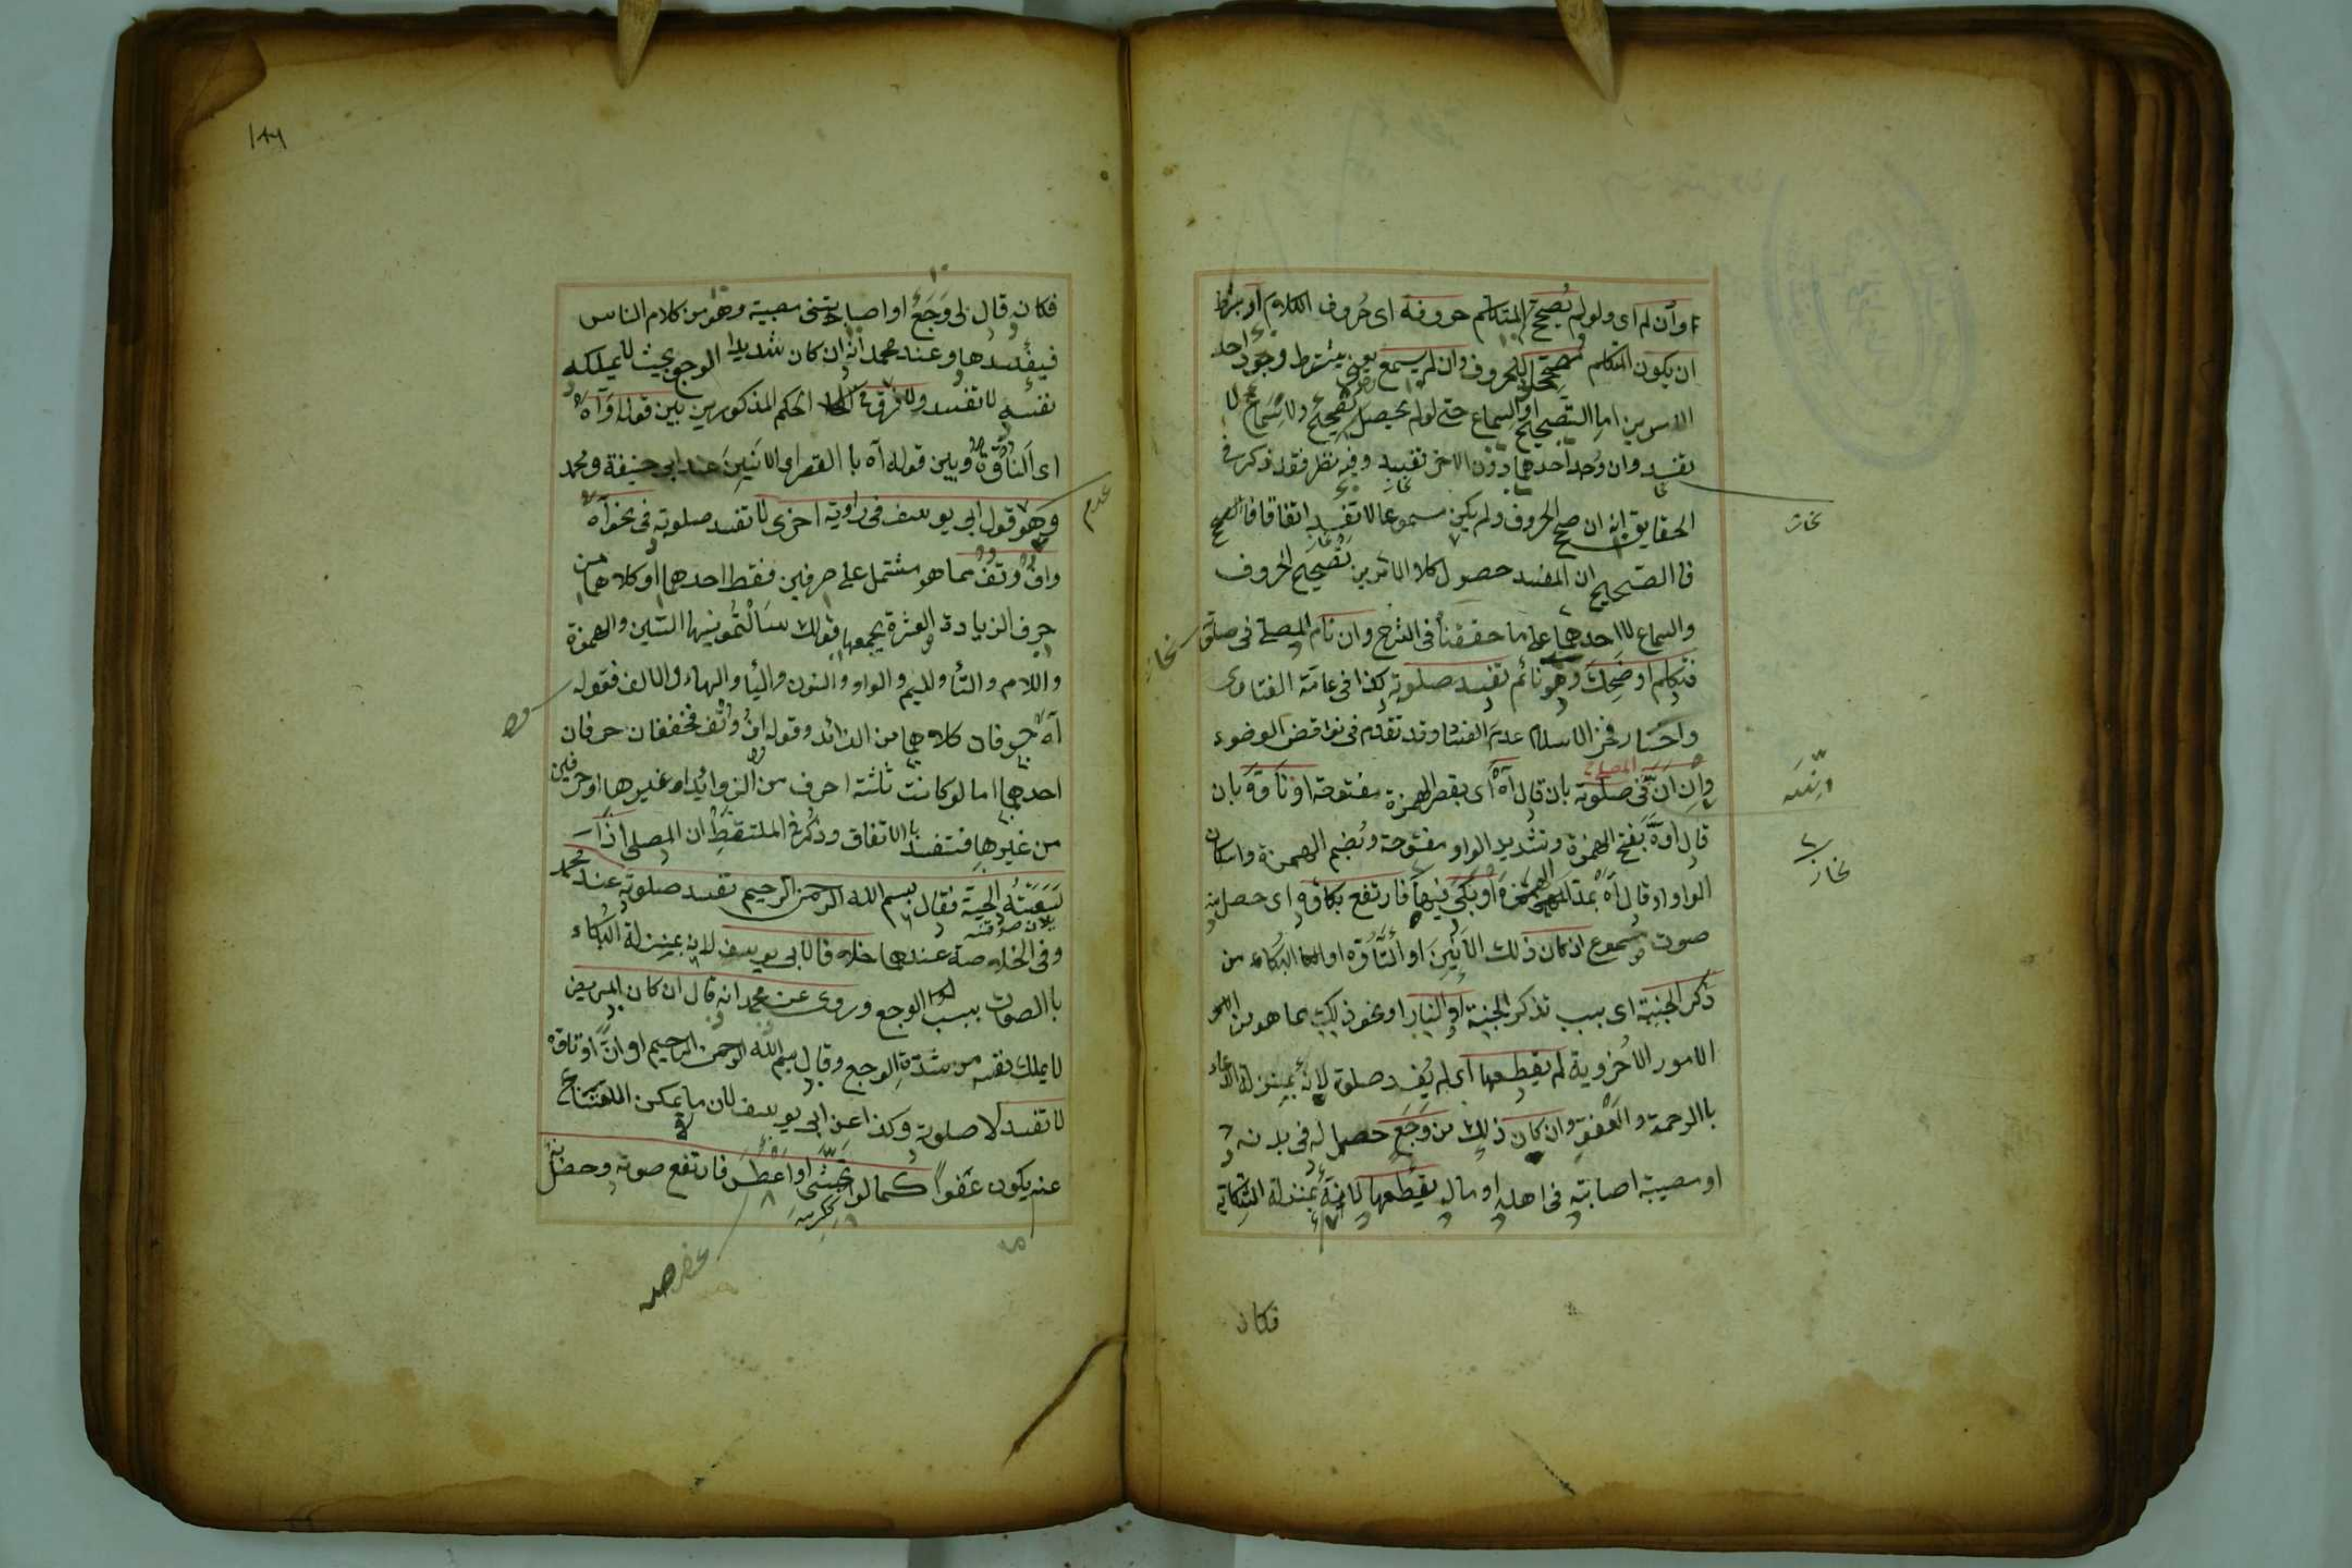 او ان لم اى ولو لم يُصحح المتكلم حروفه اى حُروف الكلام او بشرط
ان يكون المتكلم مصححا للحروف وان لم يسمع يعنى يشترط وجود احد
الامرين اما التصحيح او السماع حتى لو لم يحصل تصحيح ولا سماع لا
تفسد وان وُجد احدهما دون الاخر تفسد وفيه نظر فقد ذكر فى
الحقايق انه ان صح الحروف ولم يكن مسموعا لا تفسد اتفاقا فالصحيح
فا الصحيح ان المفسد حصول كلا الامرين تصحيح الحروف
والسماع لا احدهما على ما حققنا فى الشرح وان نام المصلى فى صلوته
فتكلم او ضحك وهو نائم تفسد صلوته كذا فى عامة الفتاوى
واختار فخر الاسلام عدم الفساد وقد تقدم فى نواقض الوضوء
وان انّ المصلى فى صلوته بان قال آهْ اى بقصر الهمزة مفتوحة او تأوّه بان
قال اوّه بفتح الهمزة وتشديد الواو مفتوحة وبضم الهمزة واسكان
الواو او قال آه بمد الهمزة او بكى فيها فارتفع بكاؤه اى حصل به
صوت مسموع ان كان ذلك الانين او التأوه او البكاء من
ذكر الجنة اى بسبب تذكر الجنة او النار او نحو ذلك مما هو من
الامور الاخروية لم يقطعها اى لم يفسد صلوته لانه بمنزلة الدعاء
با الرحمة والعفو وان كان ذلك من وجع حصل له فى بدنه
او مصيبة اصابته فى اهله او ماله يقطعها لانه بمنزلة الشكاية
فكان
فكان قال لى وجع او اصابتنى مصيبة وهو من كلام الناس
فيفسدها وعند محمد انه ان كان شديد الوجع بحيث لا يملكه
نفسه لا تفسد ولا فرق فى الحكم المذكورين بين قوله اوّاه
اى التأوّه وبين قوله آه با القصر اى الانين عند ابى حنيفة ومحمد
وهو قول ابى يوسف فى رواية اخرى لا تفسد صلوته فى نحو آه
واف وتف مما هو مشتمل على حرفين فقط احدهما او كلاهما من
حرف الزيادة العشرة يجمعها قولك سألتمونيها السين والهمزة
واللام والتأ والميم والواو والنون واليأ والهاء والالف فقوله
آه حرفان كلاهما من الزائد وقوله اف وتف مخففان حرفان
احدهما اما لو كانت ثلثة احرف من الزوائد او غيرها او حرفين
من غيرها فتفسد با الاتفاق وذكر فى الملتقط ان المصلى اذا
لسعته الحية فقال بسم الله الرحمن الرحيم تفسد صلوته عند محمد
وفى الخلاصة عندهما خلافا لابى يوسف لانه بمنزلة البكاء
با الصوت بسبب الوجع وروى عن محمد انه قال ان كان المريض
لا يملك نفسه من شدة الوجع وقال بسم الله الرحمن الرحيم او انّ او تأوه
لا تفسد صلوته وكذا عن ابى يوسف لان ما يمكن الامتناع
عنه يكون عفوا كما لو تجشى او عطس فارتفع صوته وحصل به
عدم